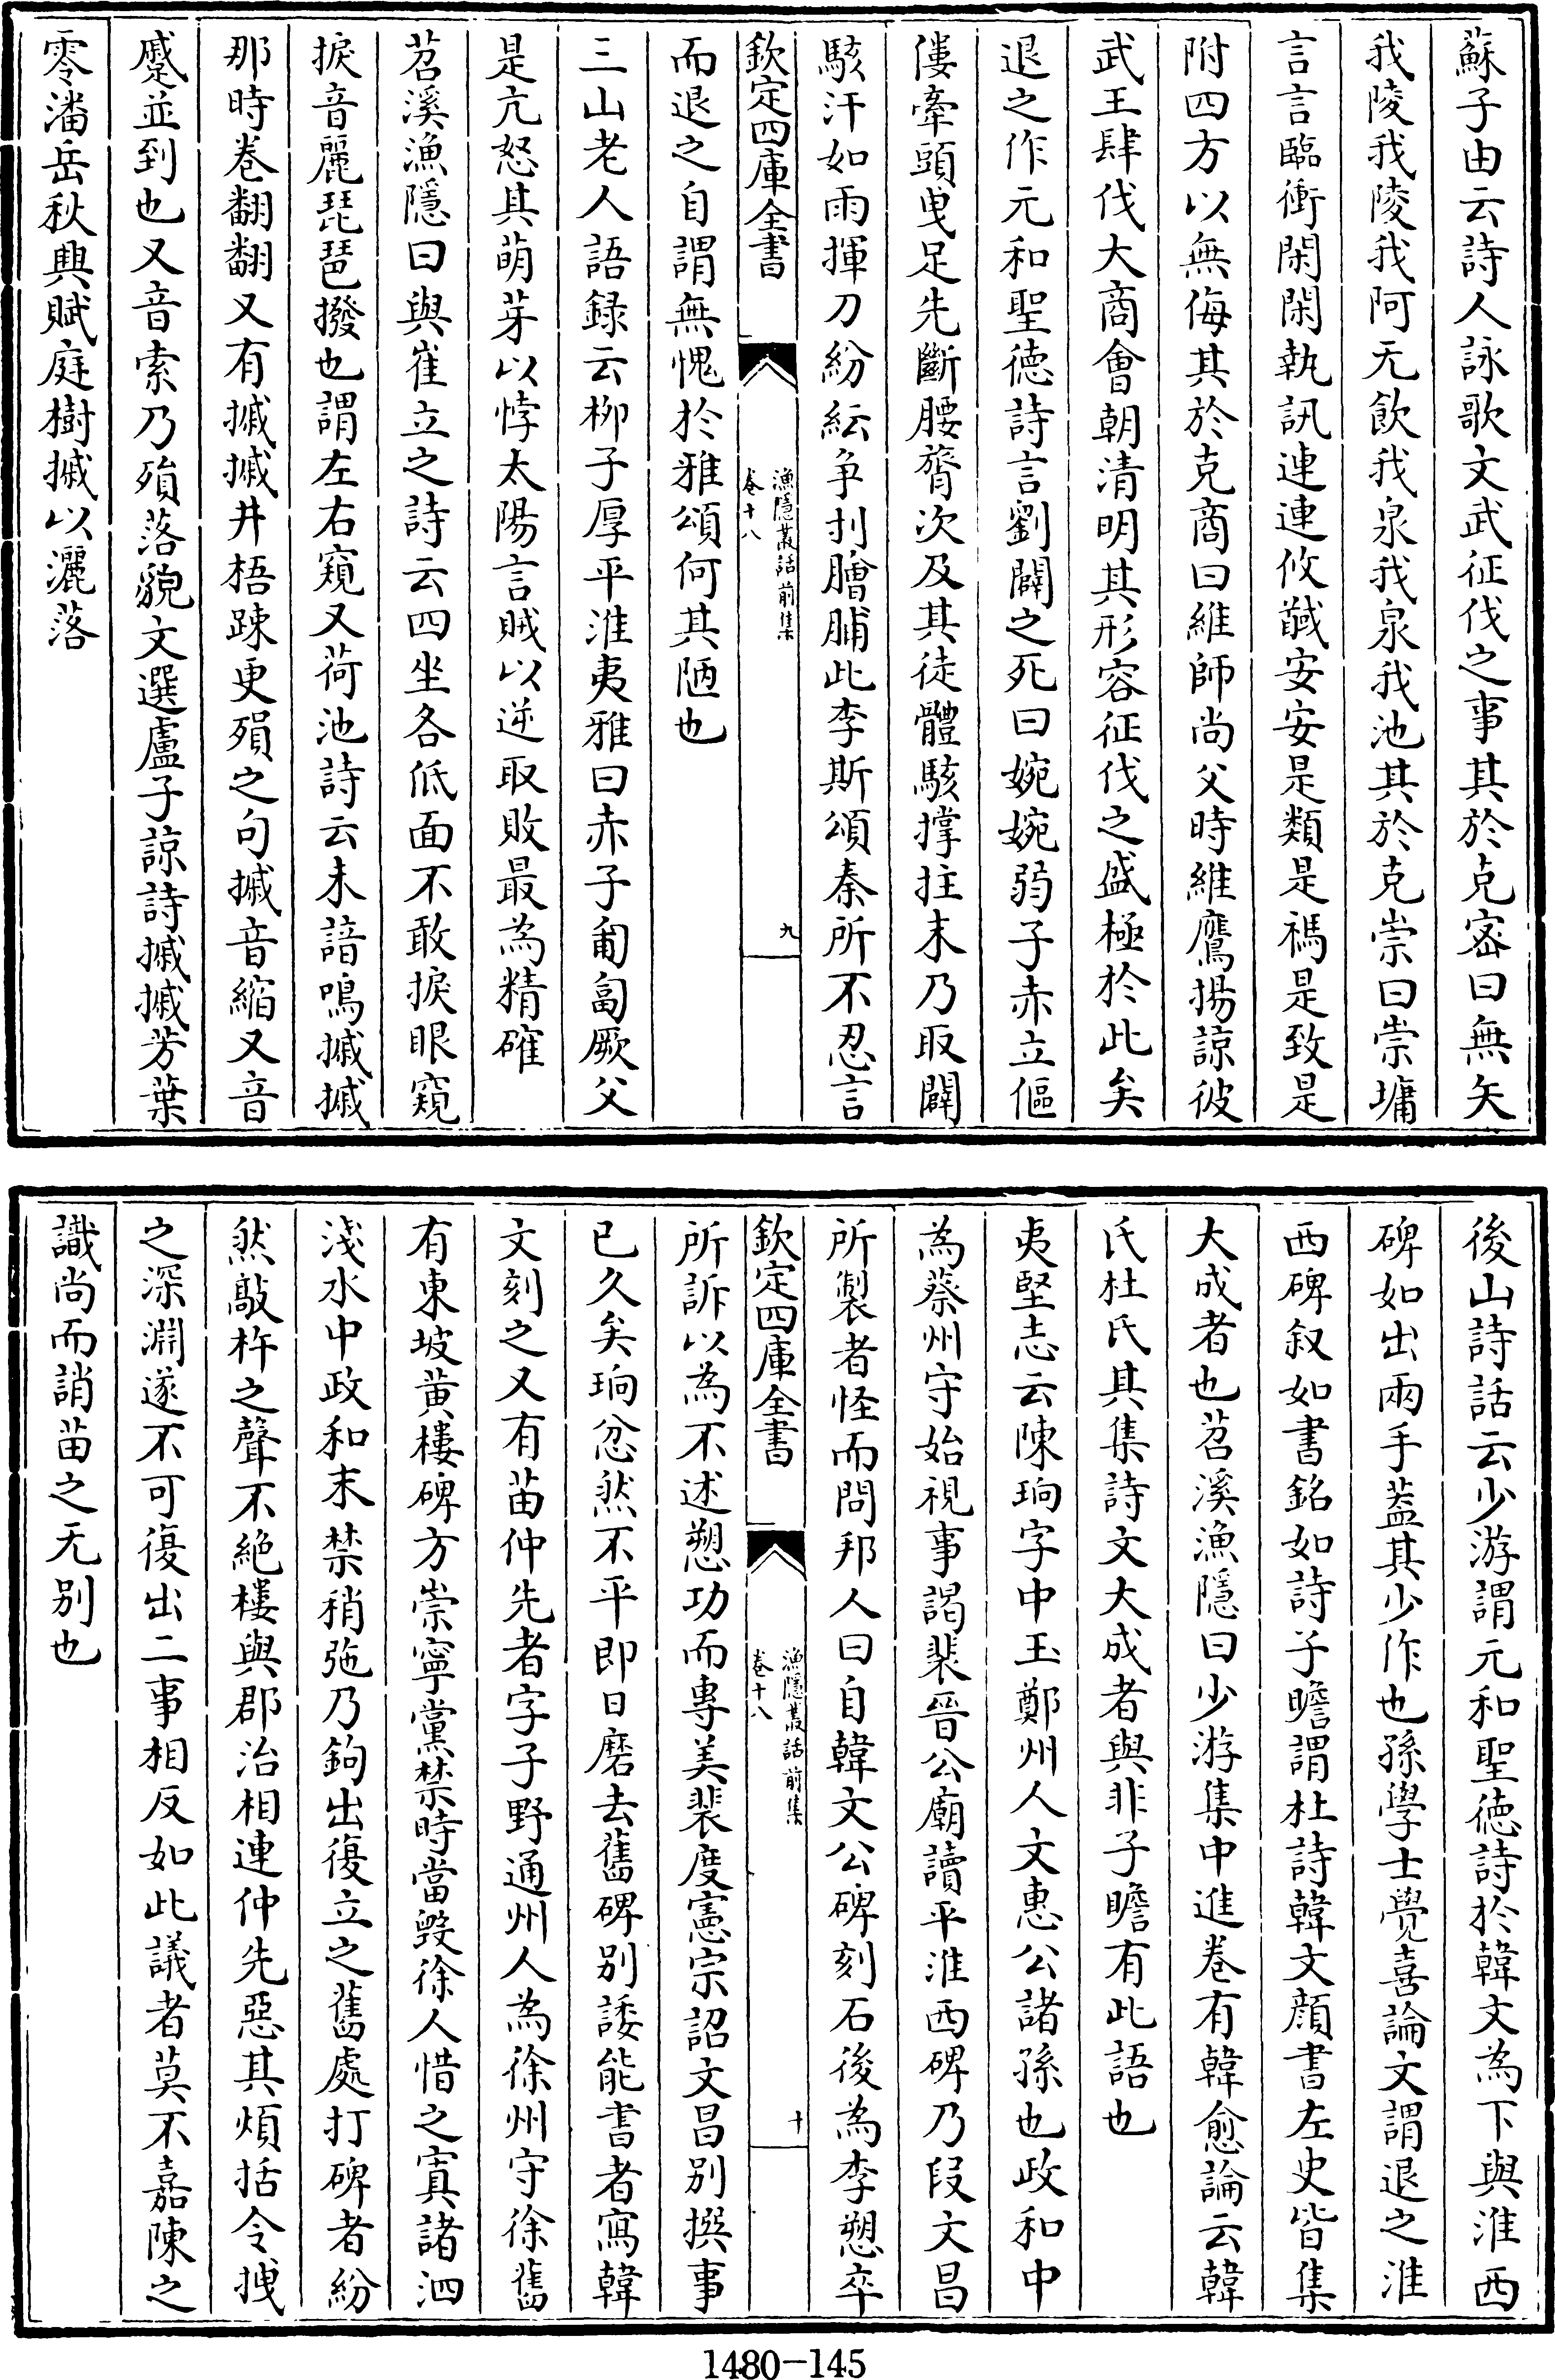 蘇子由云詩人詠歌文武征伐之事其於克宻曰無矢
我陵我陵我阿无飲我泉我泉我池其於克崇曰崇墉
言言臨衝閑閑執訊連連攸馘安安是類是禡是致是
附四方以無侮其於克商曰維師尚父時維鷹揚諒彼
武王肆伐大商會朝清明其形容征伐之盛極於此矣
退之作元和聖德詩言劉闢之死曰婉婉弱子赤立傴
僂牽頭曳足先斷腰膂次及其徒體駭撑拄末乃取闢
駭汗如雨揮刀紛紜争刌膾脯此李斯頌秦所不忍言
欽定四庫全書
漁隱叢話前集
卷十八
九
而退之自謂無愧於雅頌何其陋也
三山老人語録云栁子厚平淮夷雅曰赤子匍匐厥父
是亢怒其萌芽以悖太陽言賊以逆取敗最為精確
苕溪漁隱曰與崔立之詩云四坐各低面不敢捩眼窺
捩音麗琵琶撥也謂左右窺又荷池詩云未諳鳴摵摵
那時卷翻翻又有摵摵井梧踈更殞之句摵音縮又音
蹙並到也又音索乃殞落貌文選盧子諒詩摵摵芳葉
零潘岳秋興賦庭樹摵以灑落
後山詩話云少游謂元和聖徳詩於韓文為下與淮西
碑如出兩手葢其少作也孫學士覺喜論文謂退之淮
西碑叙如書銘如詩子瞻謂杜詩韓文顔書左史皆集
大成者也苕溪漁隱曰少游集中進卷有韓愈論云韓
氏杜氏其集詩文大成者與非子瞻有此語也
夷堅志云陳珦字中玉鄭州人文惠公諸孫也政和中
為蔡州守始視事謁裴晉公廟讀平淮西碑乃段文昌
所製者怪而問邦人曰自韓文公碑刻石後為李愬卒
欽定四庫全書
漁隱叢話前集
卷十八
十
所訴以為不述愬功而專美裴度憲宗詔文昌别撰事
已久矣珦忿然不平即日磨去舊碑别諉能書者寫韓
文刻之又有苗仲先者字子野通州人為徐州守徐舊
有東坡黄樓碑方崇寧黨禁時當毁徐人惜之寘諸泗
淺水中政和末禁稍弛乃鉤出復立之舊處打碑者紛
然敲杵之聲不絶樓與郡治相連仲先惡其煩括令拽
之深淵遂不可復出二事相反如此議者莫不嘉陳之
識尚而誚苗之无别也
1480-145